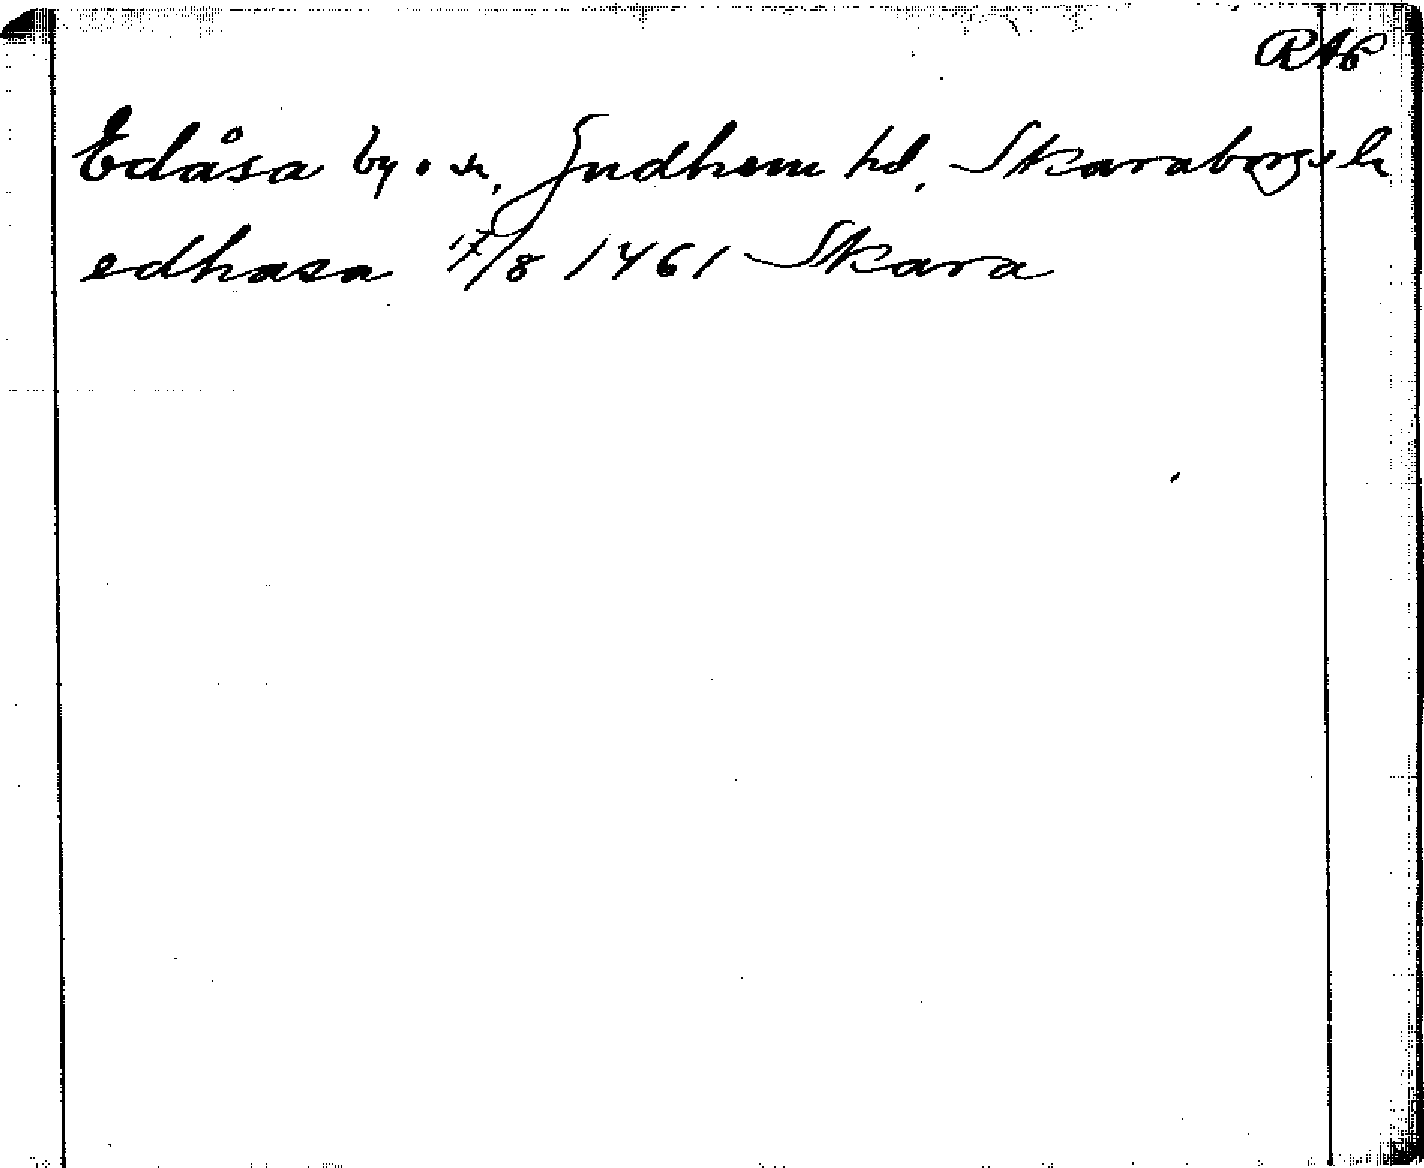 RAP
Edåsa by o. sn, Gudhem hd, Skaraborgs l.
edhasa 17/8 1461 Skara